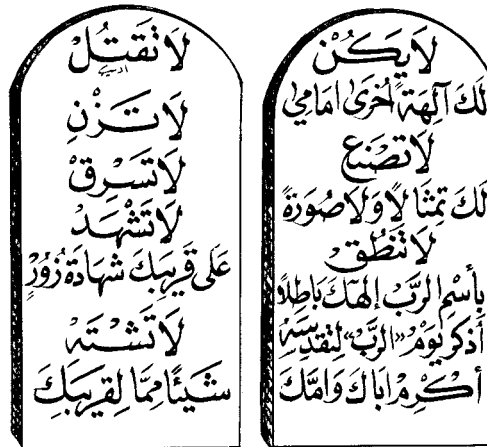 لَا يَكُنْ
لَكَ آلِهَةٌ أُخْرَىٰ اَمَامِي
لَا تَصْنَع
لَكَ تِمْثَالًا وَلَا صُورَةً
لَا تَنْطُق
بِأْسْمِ الرَّبِّ إِلٰهِكَ بَاطِلًا
اُذْكُر يَوْمَ «الرَّبّ» لِتُقَدِّسَهُ
أَكْرِمْ اَبَاكَ وَاُمَّكَ
لَا تَقْتُلْ
لَا تَزْنِ
لَا تَسْرِقْ
لَا تَشْهَدْ
عَلَى قَرِيبِكَ شَهَادَةَ زُورٍ
لَا تَشْتَهِ
شَيْئًا مِمَّا لِقَرِيبِكَ